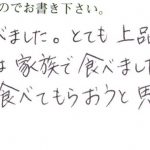 のでお書き下さい。
べました。とても上品
は家族で食べました
食べてもらおうと思